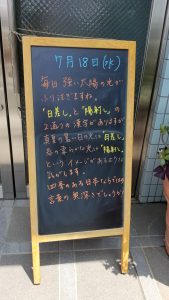 7月18日(水)
毎日 強い太陽の光が
ふり注ぎますね。
「日差し」と「陽射し」の
2通りの漢字がありますが
真夏の暑い日の光は「日差し」
春の柔らかな光は「陽射し」
というイメージがあるような
気がします。
四季のある日本ならではの
言葉の奥深さでしょうか